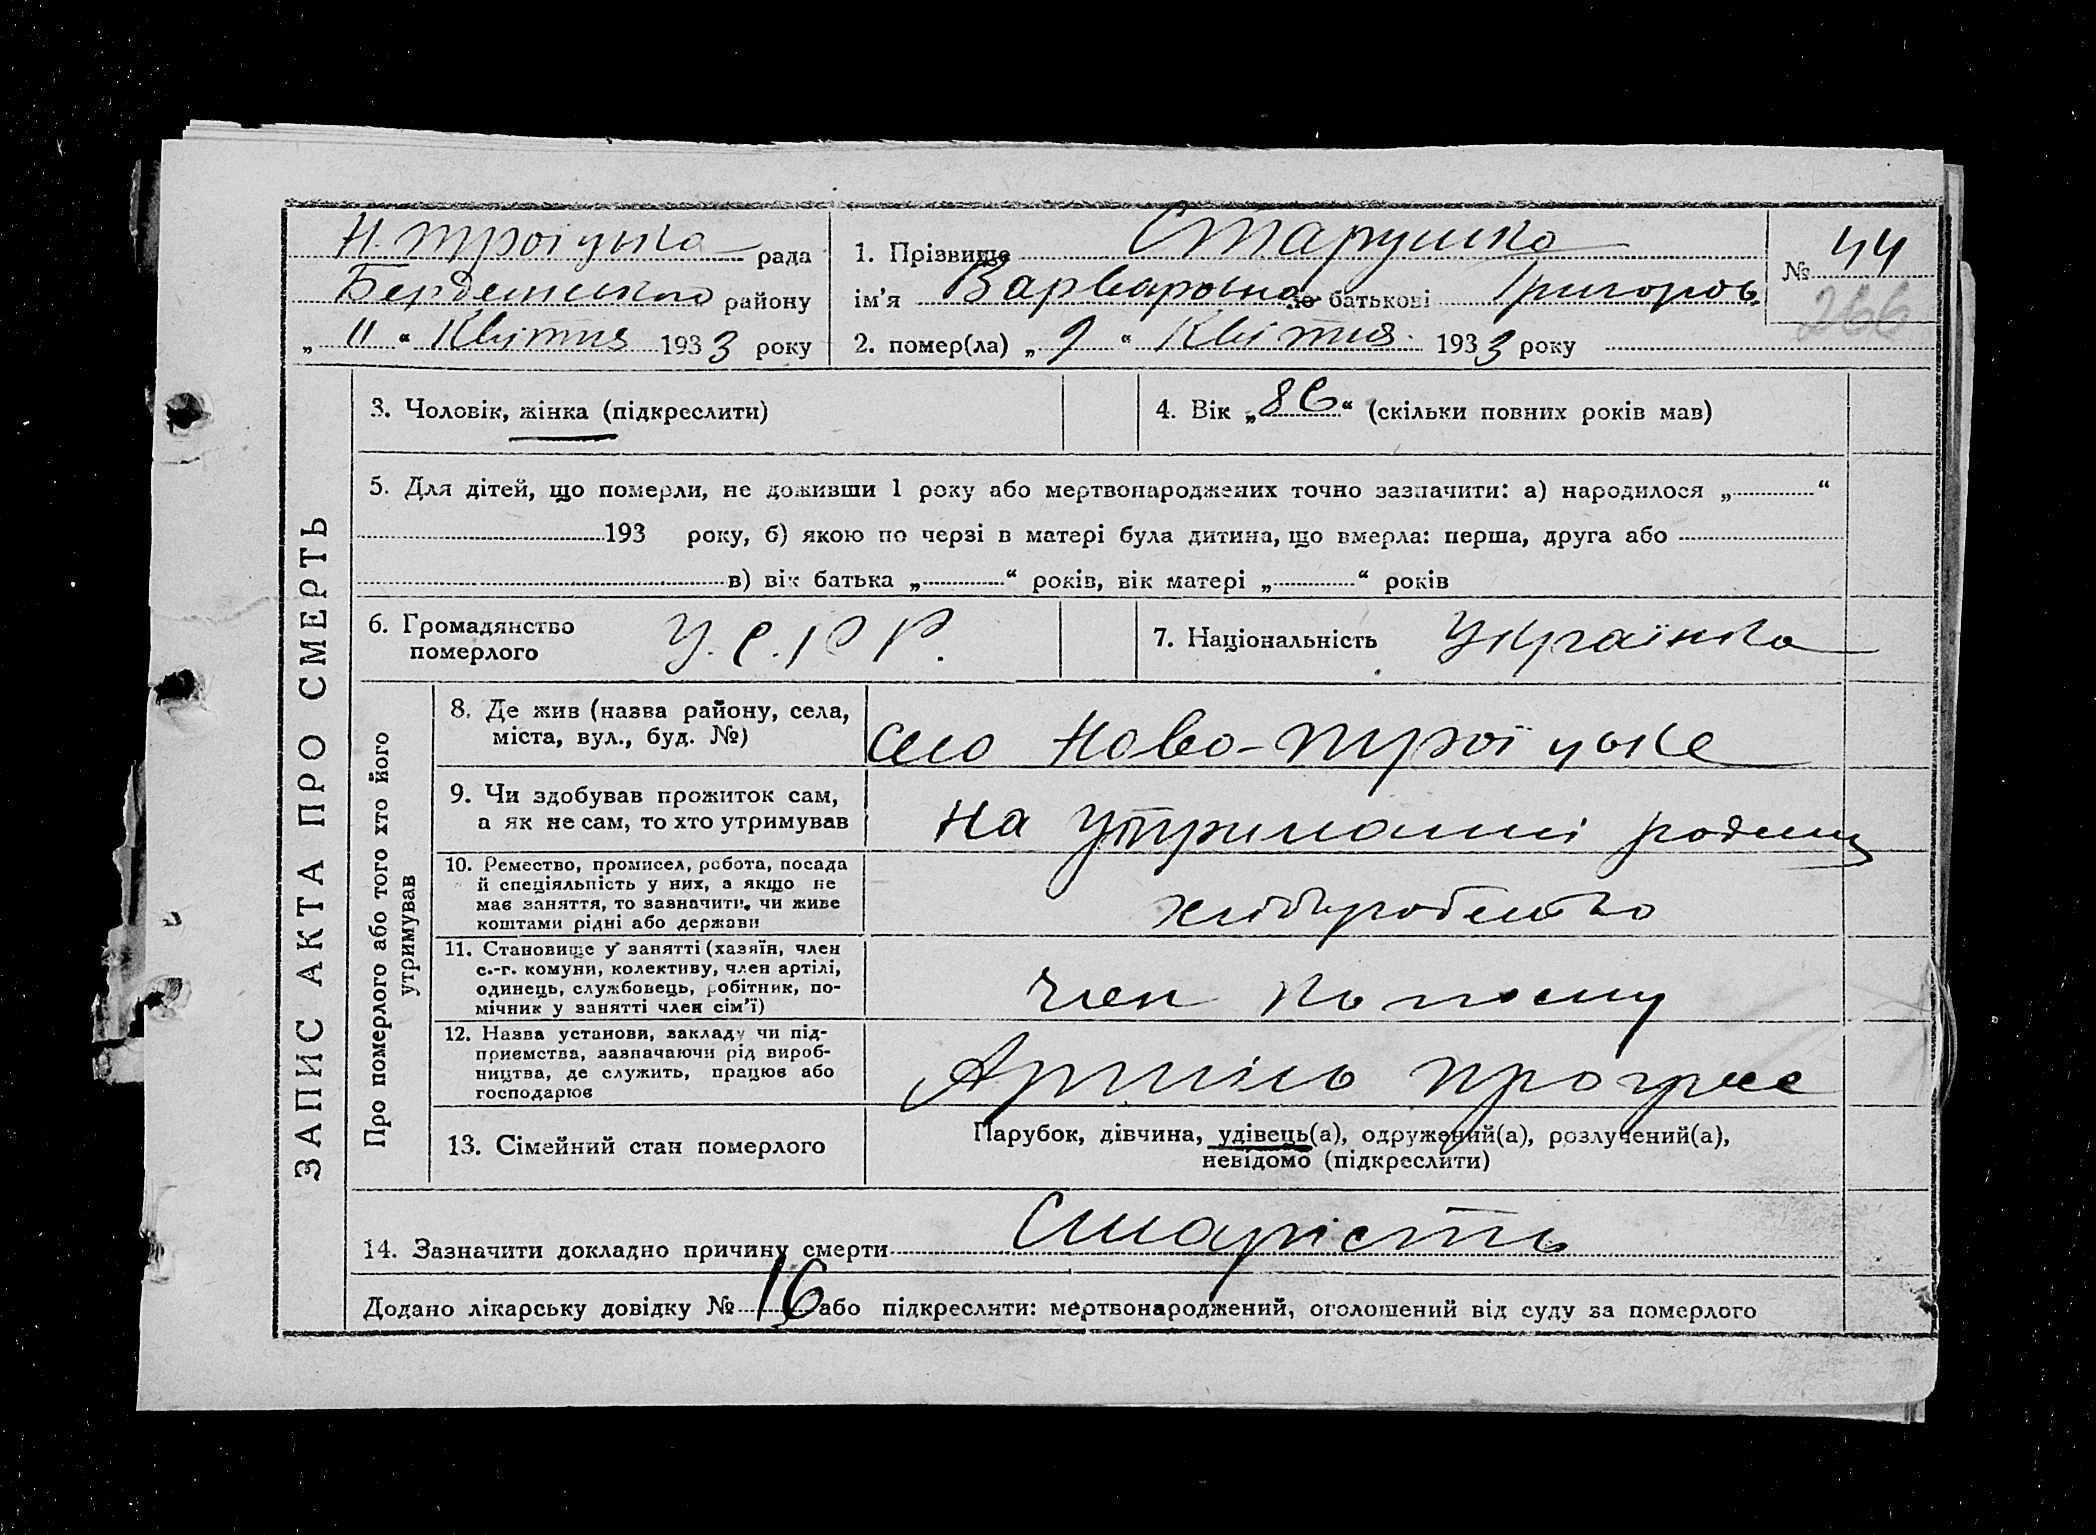 Н. Троіцька рада
Бердянського району
„ 11 “ Квітня 1933 року
1. Прізвище Старушко
ім'я Варвара по батькові Григоров.
2. помер(ла) „ 9 “ Квітня 1933 року
№ 44
266
ЗАПИС АКТА ПРО СМЕРТЬ
3. Чоловік, жінка (підкреслити)
4. Вік „86“ (скільки повних років мав)
5. Для дітей, що померли, не доживши 1 року або мертвонароджених точно зазначити: а) народилося „ “
193 року, б) якою по черзі в матері була дитина, що вмерла: перша, друга або
в) вік батька „ “ років, вік матері „ “ років
6. Громадянство
померлого У.С.Р.Р.
7. Національність Українка
Про померлого або того хто його
утримував
8. Де жив (назва району, села,
міста, вул., буд. №)
село Ново-Троїцьке
9. Чи здобував прожиток сам,
а як не сам, то хто утримував
на утриманні родини
10. Ремество, промисел, робота, посада
й спеціяльність у них, а якщо не
має заняття, то зазначити, чи живе
коштами рідні або держави
хліборобство
11. Становище у занятті (хазяїн, член
с.-г. комуни, колективу, член артілі,
одинець, службовець, робітник, по-
мічник у занятті член сім'ї)
член
12. Назва установи, закладу чи під-
приємства, зазначаючи рід вироб-
ництва, де служить, працює або
господарює
Артіль прогрес
13. Сімейний стан померлого
Парубок, дівчина, удівець(а), одружений(а), розлучений(а),
невідомо (підкреслити)
14. Зазначити докладно причину смерти Старість
Додано лікарську довідку № 16 або підкреслити: мертвонароджений, оголошений від суду за померлого